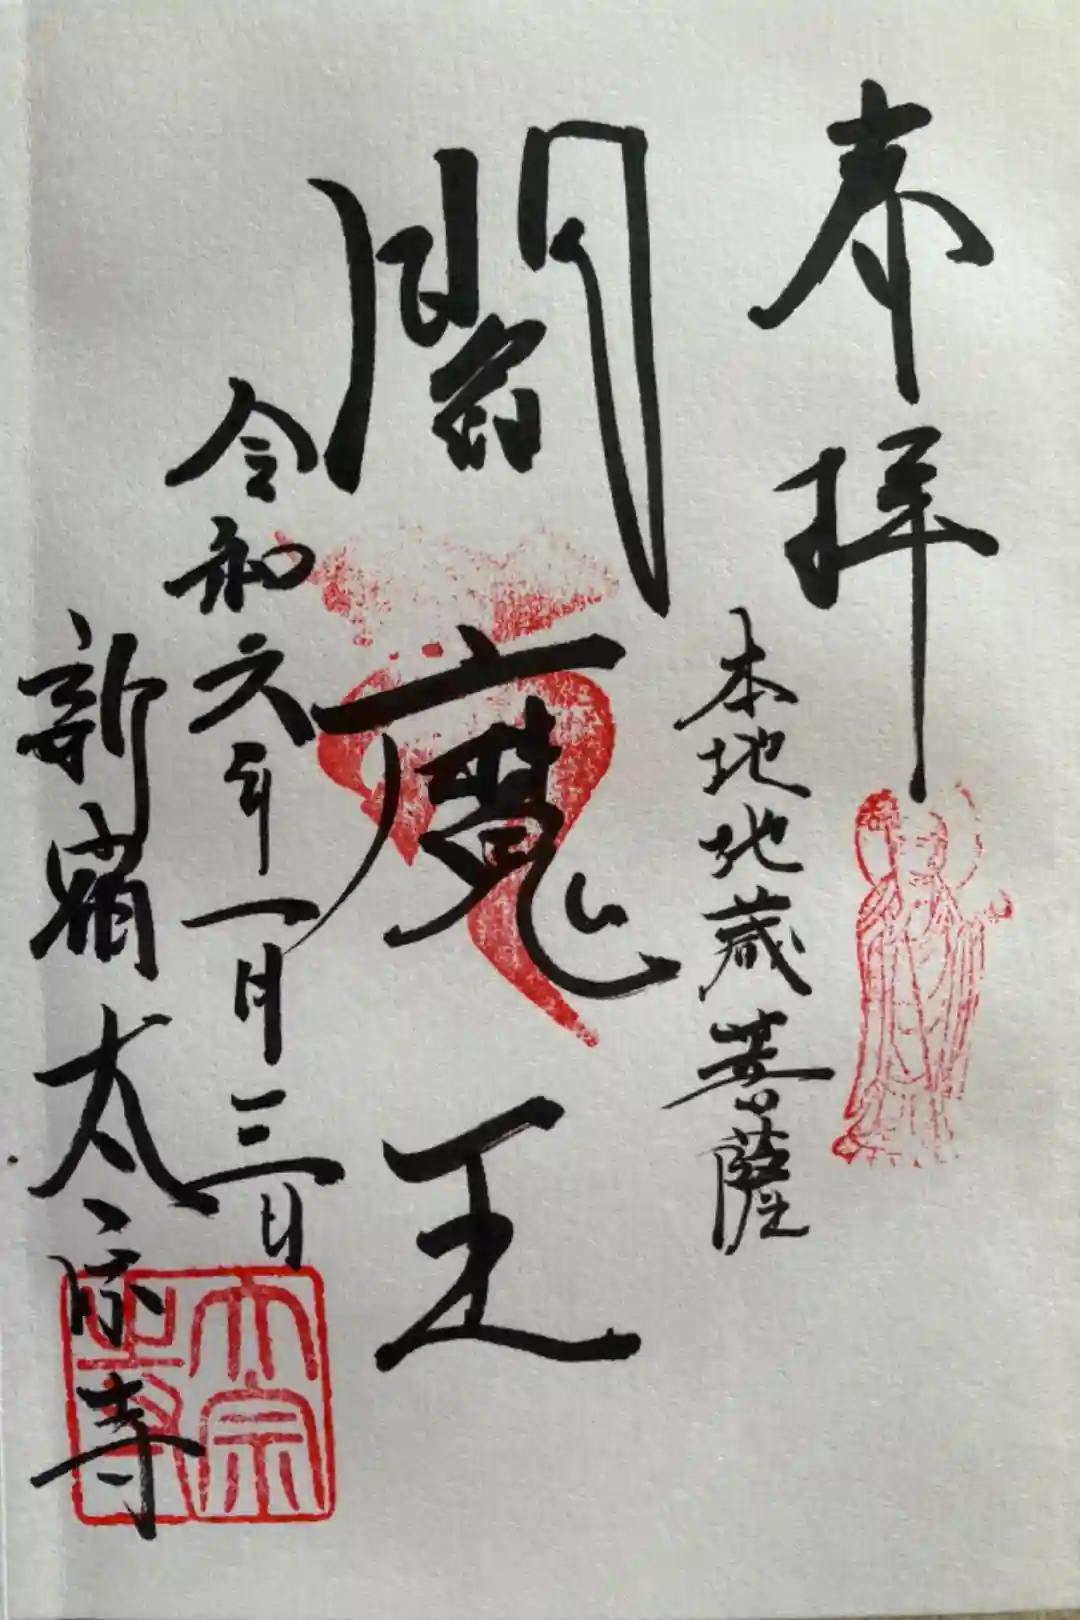 奉拝
本地地蔵菩薩
閻魔王
令和六年一月三日
新宿太宗寺
太宗